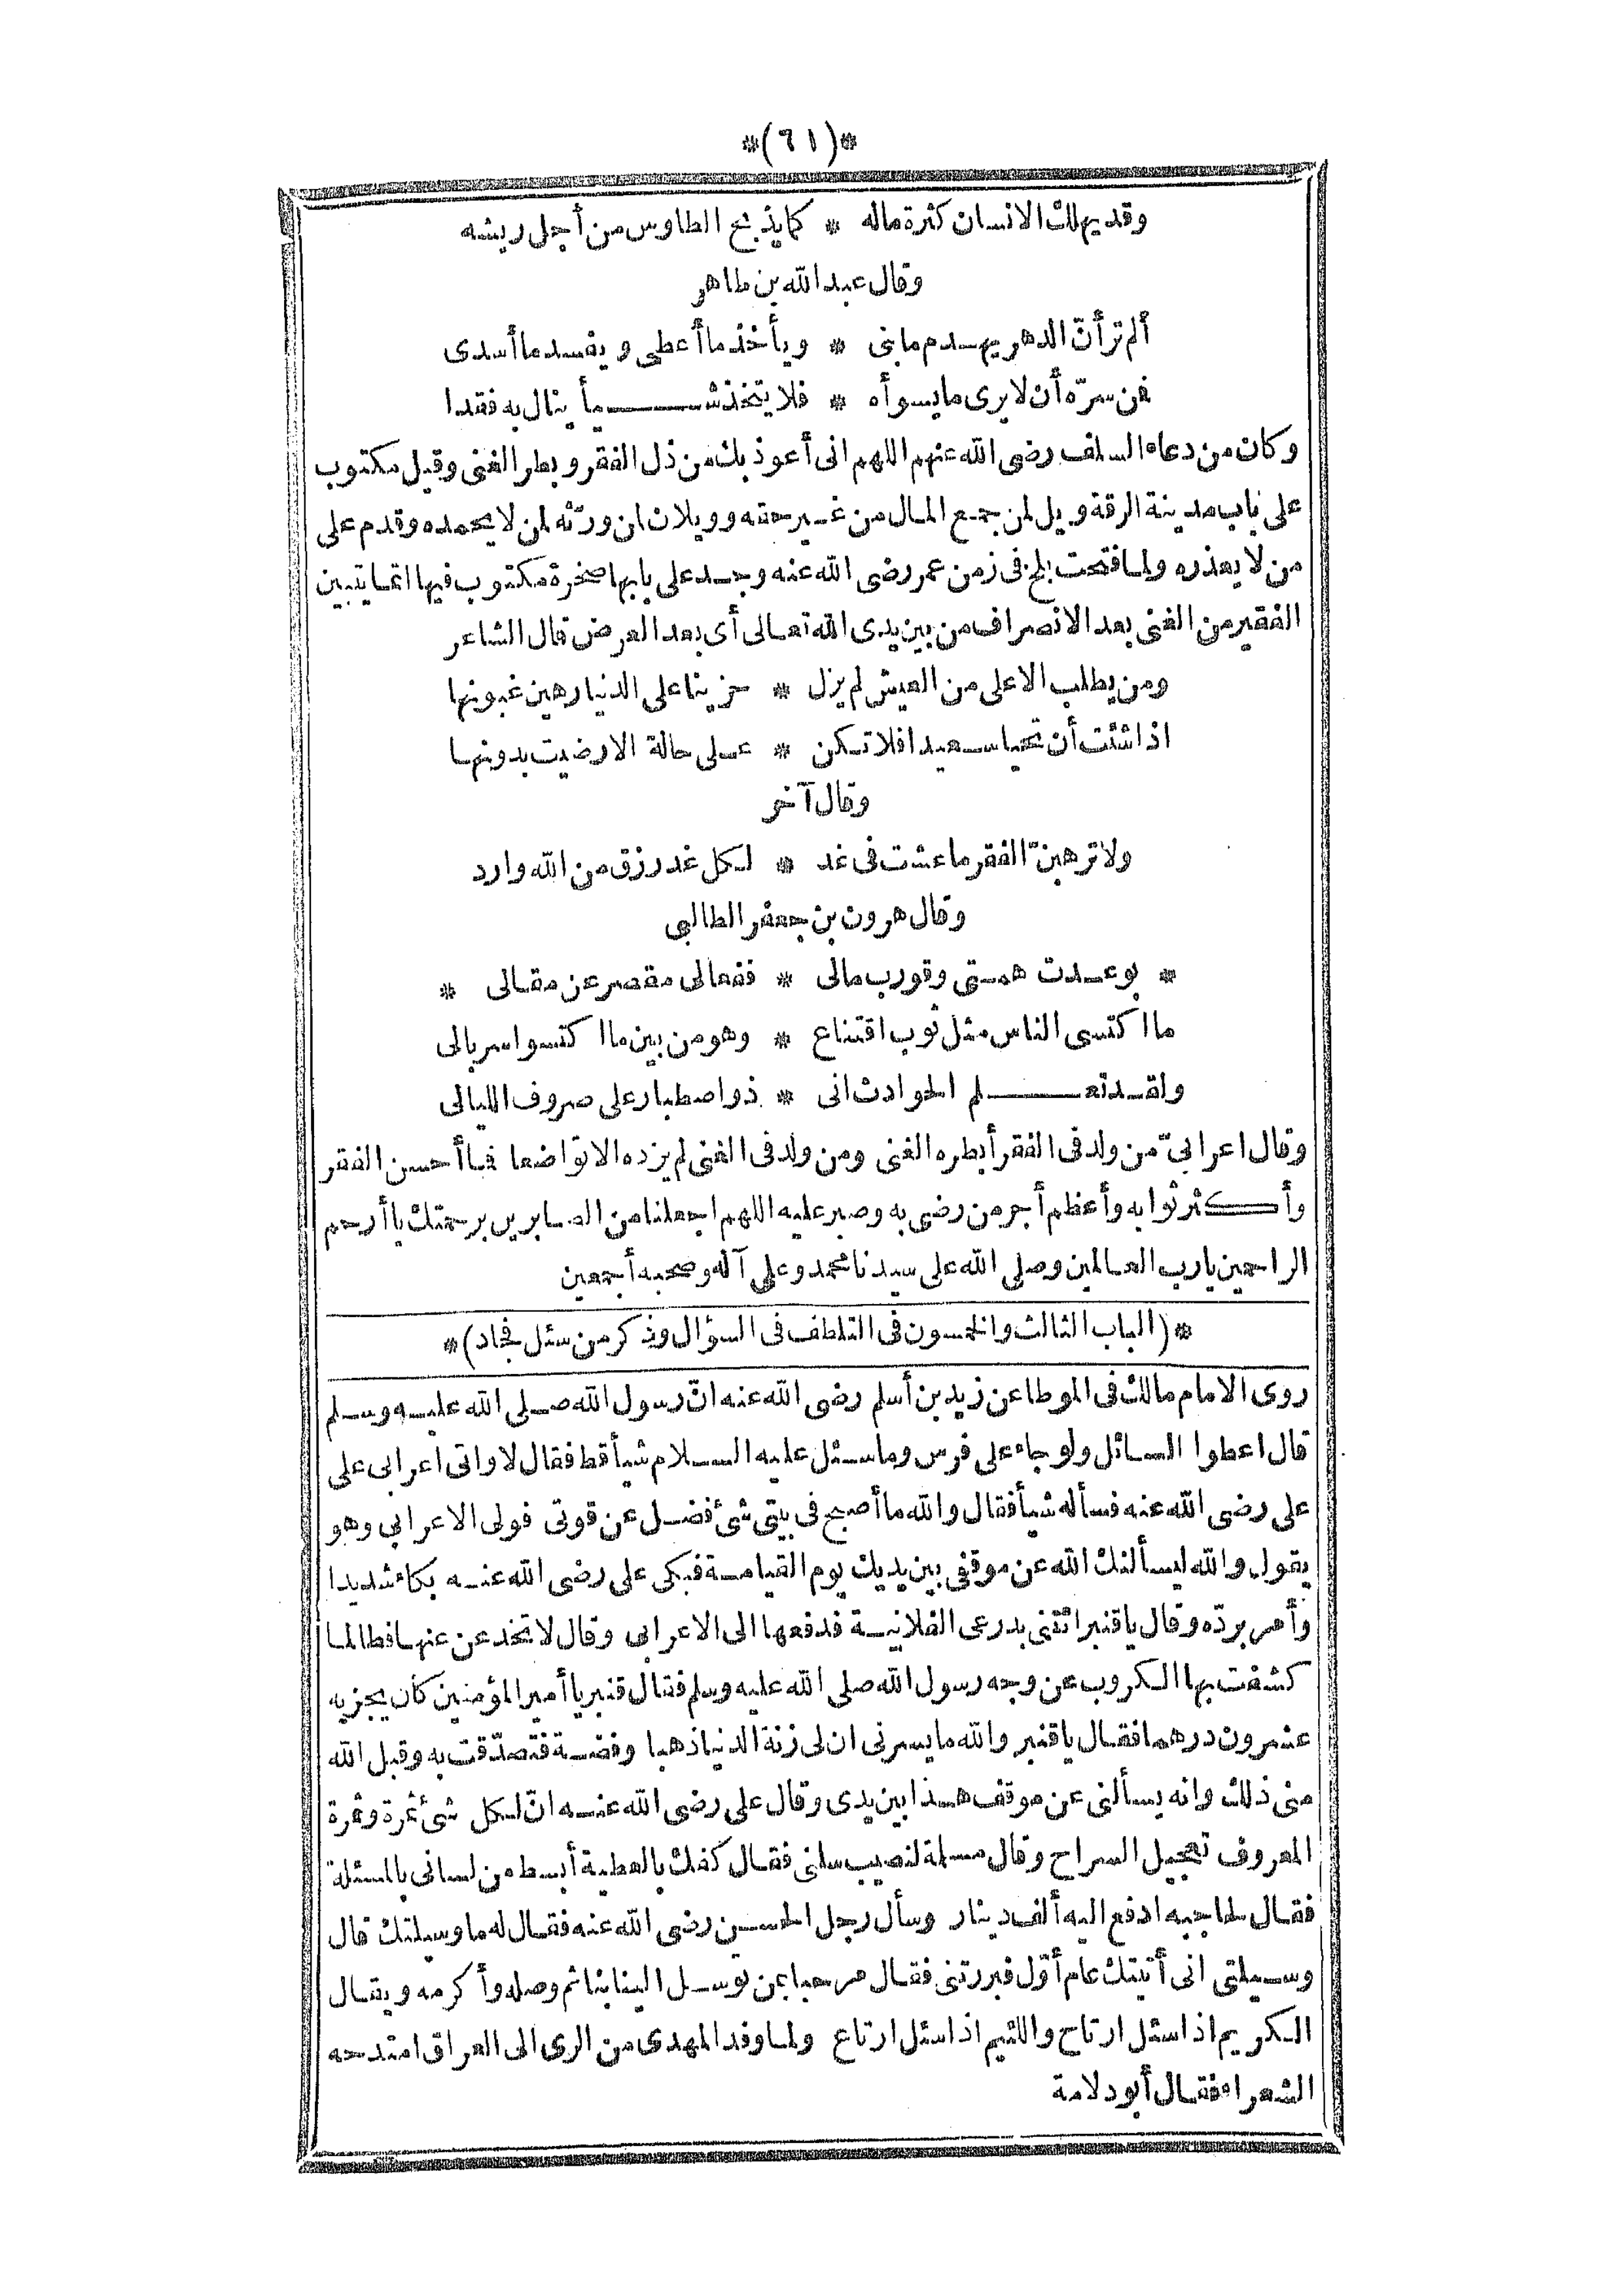 *(٦١)*
وقد يهلك الانسان كثرة ماله * كما يذبح الطاوس من أجل ريشه
وقال عبد الله بن طاهر
ألم تر أنّ الدهر يهدم ما بنى * ويأخذ ما أعطى ويفسد ما أسدى
فمن سرّه أن لا يرى ما يسوأه * فلا يتخذ شيأ ينال به فقدا
وكان من دعاء السلف رضى الله عنهم اللهم انى أعوذ بك من ذل الفقر وبطر الغنى وقيل مكتوب
على باب مدينة الرقة ويل لمن جمع المال من غير حقه وويلان ان ورّثه لمن لا يحمده وقدم على
من لا يعذره ولما فتحت بلخ فى زمن عمر رضى الله عنه وجد على بابها صخرة مكتوب فيها انما يتبين
الفقير من الغنى بعد الانصراف من بين يدى الله تعالى أى بعد العرض قال الشاعر
ومن يطلب الاعلى من العيش لم يزل * حزينا على الدنيا رهين غبونها
اذا شئت أن تحيا سعيدا فلا تكن * على حالة الا رضيت بدونها
وقال آخر
ولا ترهبنّ الفقر ما عشت فى غد * لكل غد رزق من الله وارد
وقال هرون بن جعفر الطالبى
* بوعدت همتى وقورب مالى * ففعالى مقصر عن مقالى *
ما اكتسى الناس مثل ثوب اقتناع * وهو من بين ما اكتسوا سربالى
ولقد تعلم الحوادث انى * ذو اصطبار على صروف الليالى
وقال اعرابىّ من ولد فى الفقر أبطره الغنى ومن ولد فى الغنى لم يزده الا تواضعا فما أحسن الفقر
وأكثر ثوابه وأعظم أجر من رضى به وصبر عليه اللهم اجعلنا من الصابرين برحمتك يا أرحم
الراحمين يارب العالمين وصلى الله على سيدنا محمد وعلى آله وصحبه أجمعين
*(الباب الثالث والخمسون فى التلطف فى السؤال وذكر من سئل فجاد)*
روى الامام مالك فى الموطا عن زيد بن أسلم رضى الله عنه انّ رسول الله صلى الله عليه وسلم
قال اعطوا السائل ولو جاء على فرس وما سئل عليه السلام شيأ قط فقال لا واتى اعرابى على
على رضى الله عنه فسأله شيأ فقال والله ما أصبح فى بيتى شئ فضل عن قوتى فولى الاعرابى وهو
يقول والله ليسألنك الله عن موقفى بين يديك يوم القيامة فبكى على رضى الله عنه بكاء شديدا
وأمر بردّه وقال يا قنبر ائتنى بدرعى الفلانية فدفعها الى الاعرابى وقال لا تخدعن عنها فطالما
كشفت بها الكروب عن وجه رسول الله صلى الله عليه وسلم فقال قنبر يا أمير المؤمنين كان يجزيه
عشرون درهما فقال يا قنبر والله ما يسرنى ان لى زنة الدنيا ذهبا وفضة فتصدّقت به وقبل الله
منى ذلك وانه يسألنى عن موقف هذا بين يدى وقال على رضى الله عنه انّ لكل شئ ثمرة وثمرة
المعروف تعجيل السراح وقال مسلمة لنصيب سلنى فقال كفك بالعطية أبسط من لسانى بالمسئلة
فقال لحاجبه ادفع اليه ألف دينار وسأل رجل الحسن رضى الله عنه فقال له ما وسيلتك قال
وسيلتى انى أتيتك عام أوّل فبررتنى فقال مرحبا بمن توسل الينا بنا ثم وصله وأكرمه ويقال
الكريم اذا سئل ارتاح واللئيم اذا سئل ارتاع ولما وفد المهدى من الرى الى العراق امتدحه
الشعراء فقال أبو دلامة